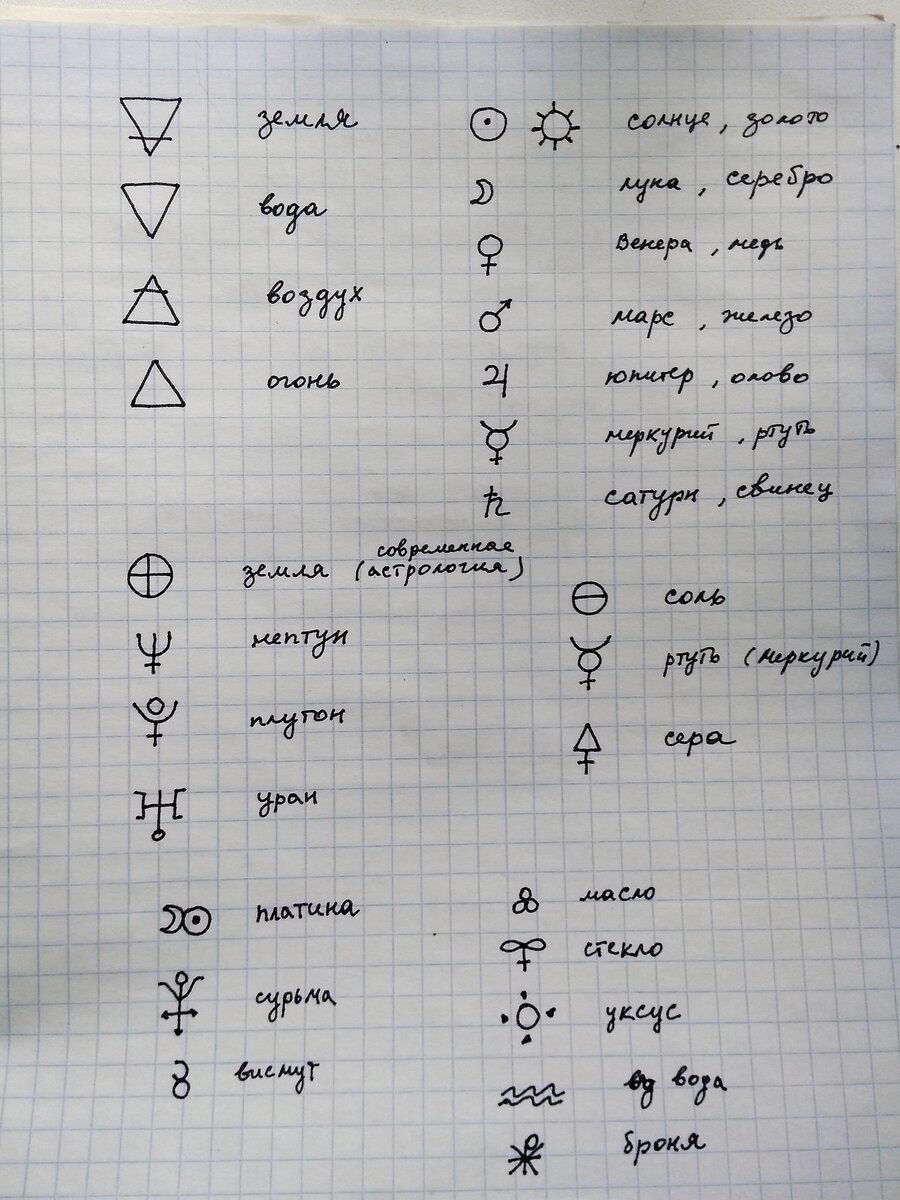 земля
вода
воздух
огонь
солнце, золото
луна, серебро
Венера, медь
марс, железо
юпитер, олово
меркурий, ртуть
сатурн, свинец
земля (современная астрология)
нептун
плутон
уран
соль
ртуть (меркурий)
сера
платина
сурьма
висмут
масло
стекло
уксус
вода
броня